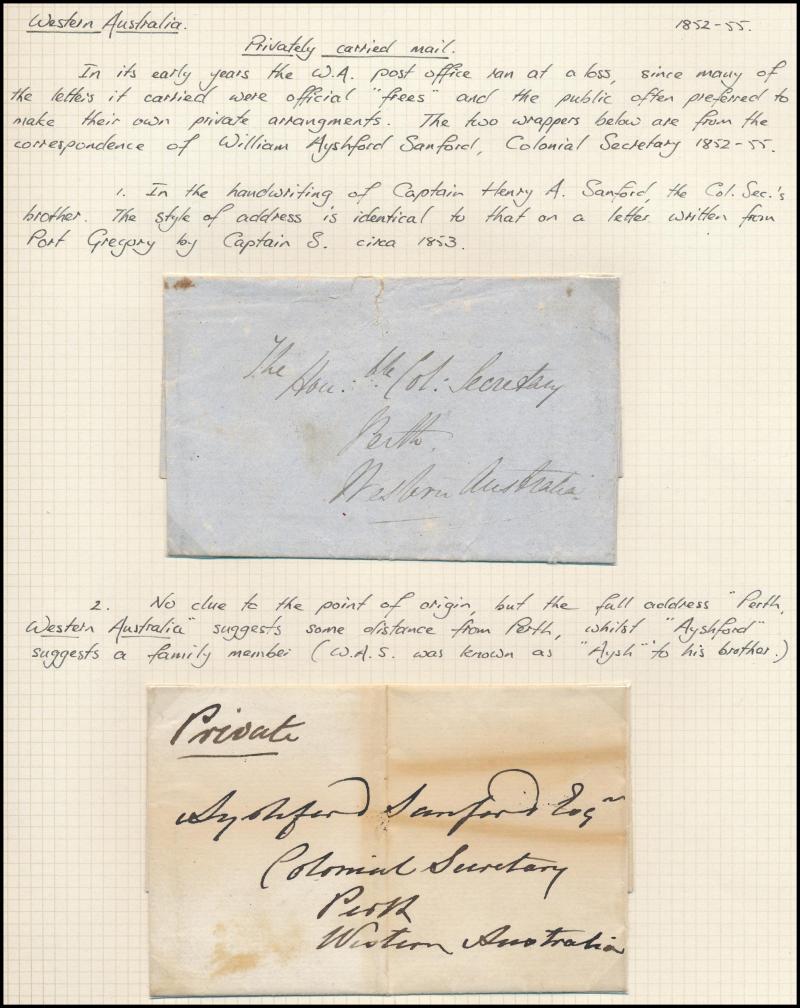 Western Australia. 1852-55.
Privately carried mail.
In its early years the W.A. post office ran at a loss, since many of
the letters it carried were official "frees" and the public often preferred to
make their own private arrangments. The two wrappers below are from the
correspondence of William Ayshford Sanford, Colonial Secretary 1852-55.
1. In the handwriting of Captain Henry A. Sanford, the Col. Sec.'s
brother. The style of address is identical to that on a letter written from
Port Gregory by Captain S. circa 1853.
The
Hon:ble Col: Secretary
Perth.
Western Australia
2. No clue to the point of origin, but the full address "Perth,
Western Australia" suggests some distance from Perth, whilst "Ayshford"
suggests a family member (W.A.S. was known as "Aysh" to his brother.)
Private
Ayshford Sanford Esqr
Colonial Secretary
Perth
Western Australia